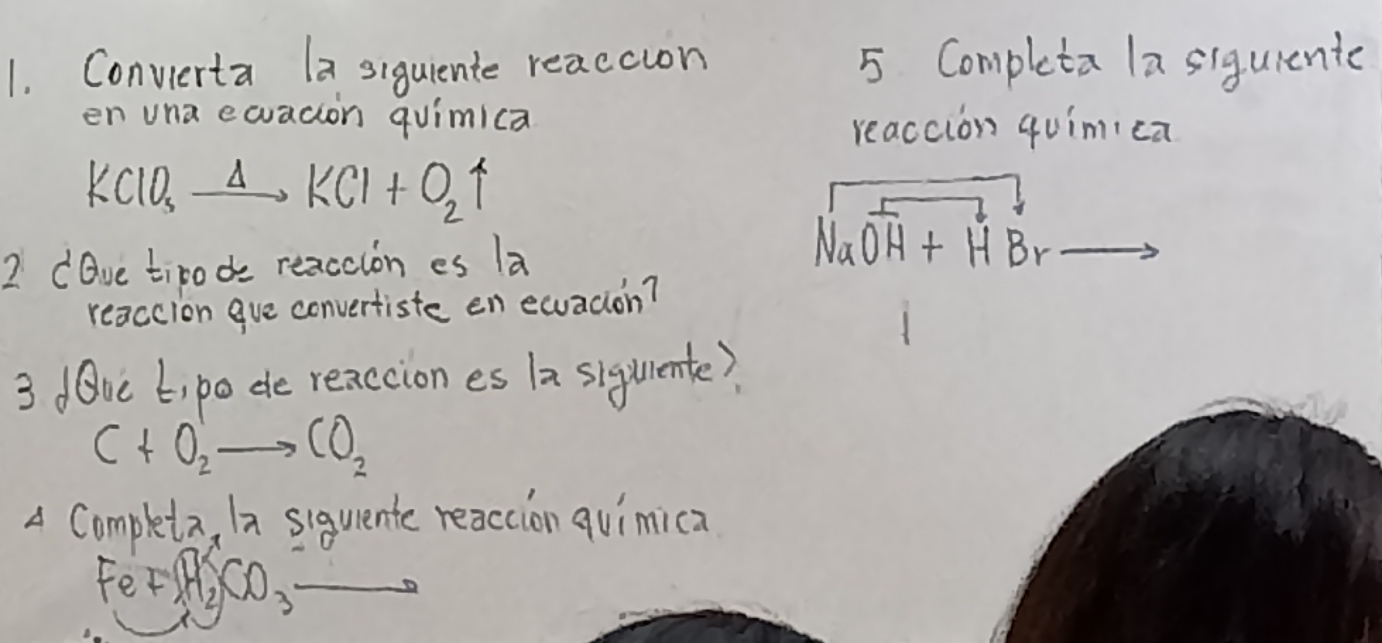 1. Convierta la siguiente reaccion
en una ecuación química
KClO₃ —Δ→ KCl + O₂↑
2 ¿Que tipo de reacción es la
reaccion que convertiste en ecuación?
3 ¿Que tipo de reaccion es la siguiente?
C + O₂ → CO₂
4 Completa, la siguiente reacción química
Fe + H₂CO₃ →
5 Completa la siguiente
reacción química
NaOH + H Br →